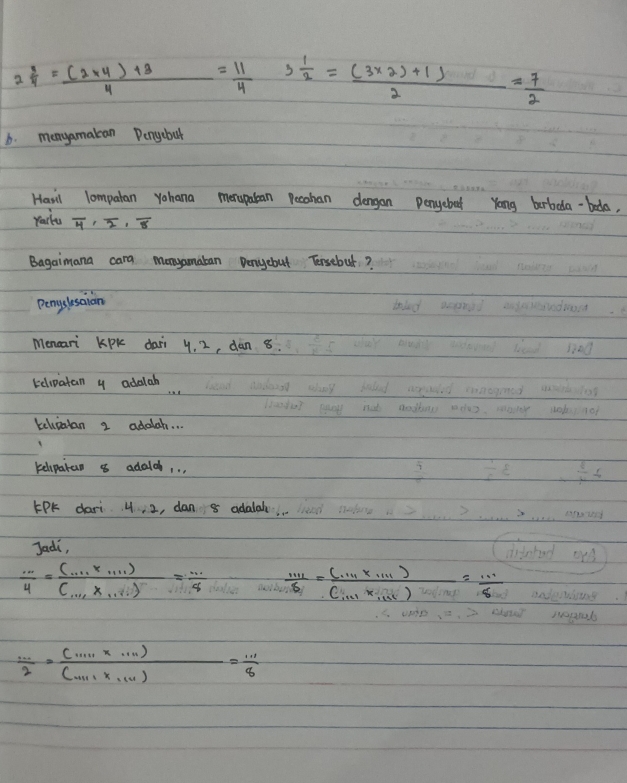 2 3/4 = (2×4)+3 / 4 = 11/4    3 1/2 = (3×2)+1) / 2 = 7/2
b. Menyamakan Penyebut
Hasil lompatan Yohana merupakan Pecahan dengan Penyebut yang berbeda-beda,
Yaitu /4, /2, /8
Bagaimana cara Menyamakan Penyebut Tersebut?
Penyelesaian
Mencari KPK dari 4,2, dan 8.
Kelipatan 4 adalah ...
Kelipatan 2 adalah...
Kelipatan 8 adalah ...
KPK dari 4,2, dan 8 adalah...
Jadi,
.../4 = (.... × ....)/(.... × ....) = .../8    ..../8 = (.... × ....)/(.... × ....) = .../8
.../2 = (..... × ....)/(..... × ....) = .../8